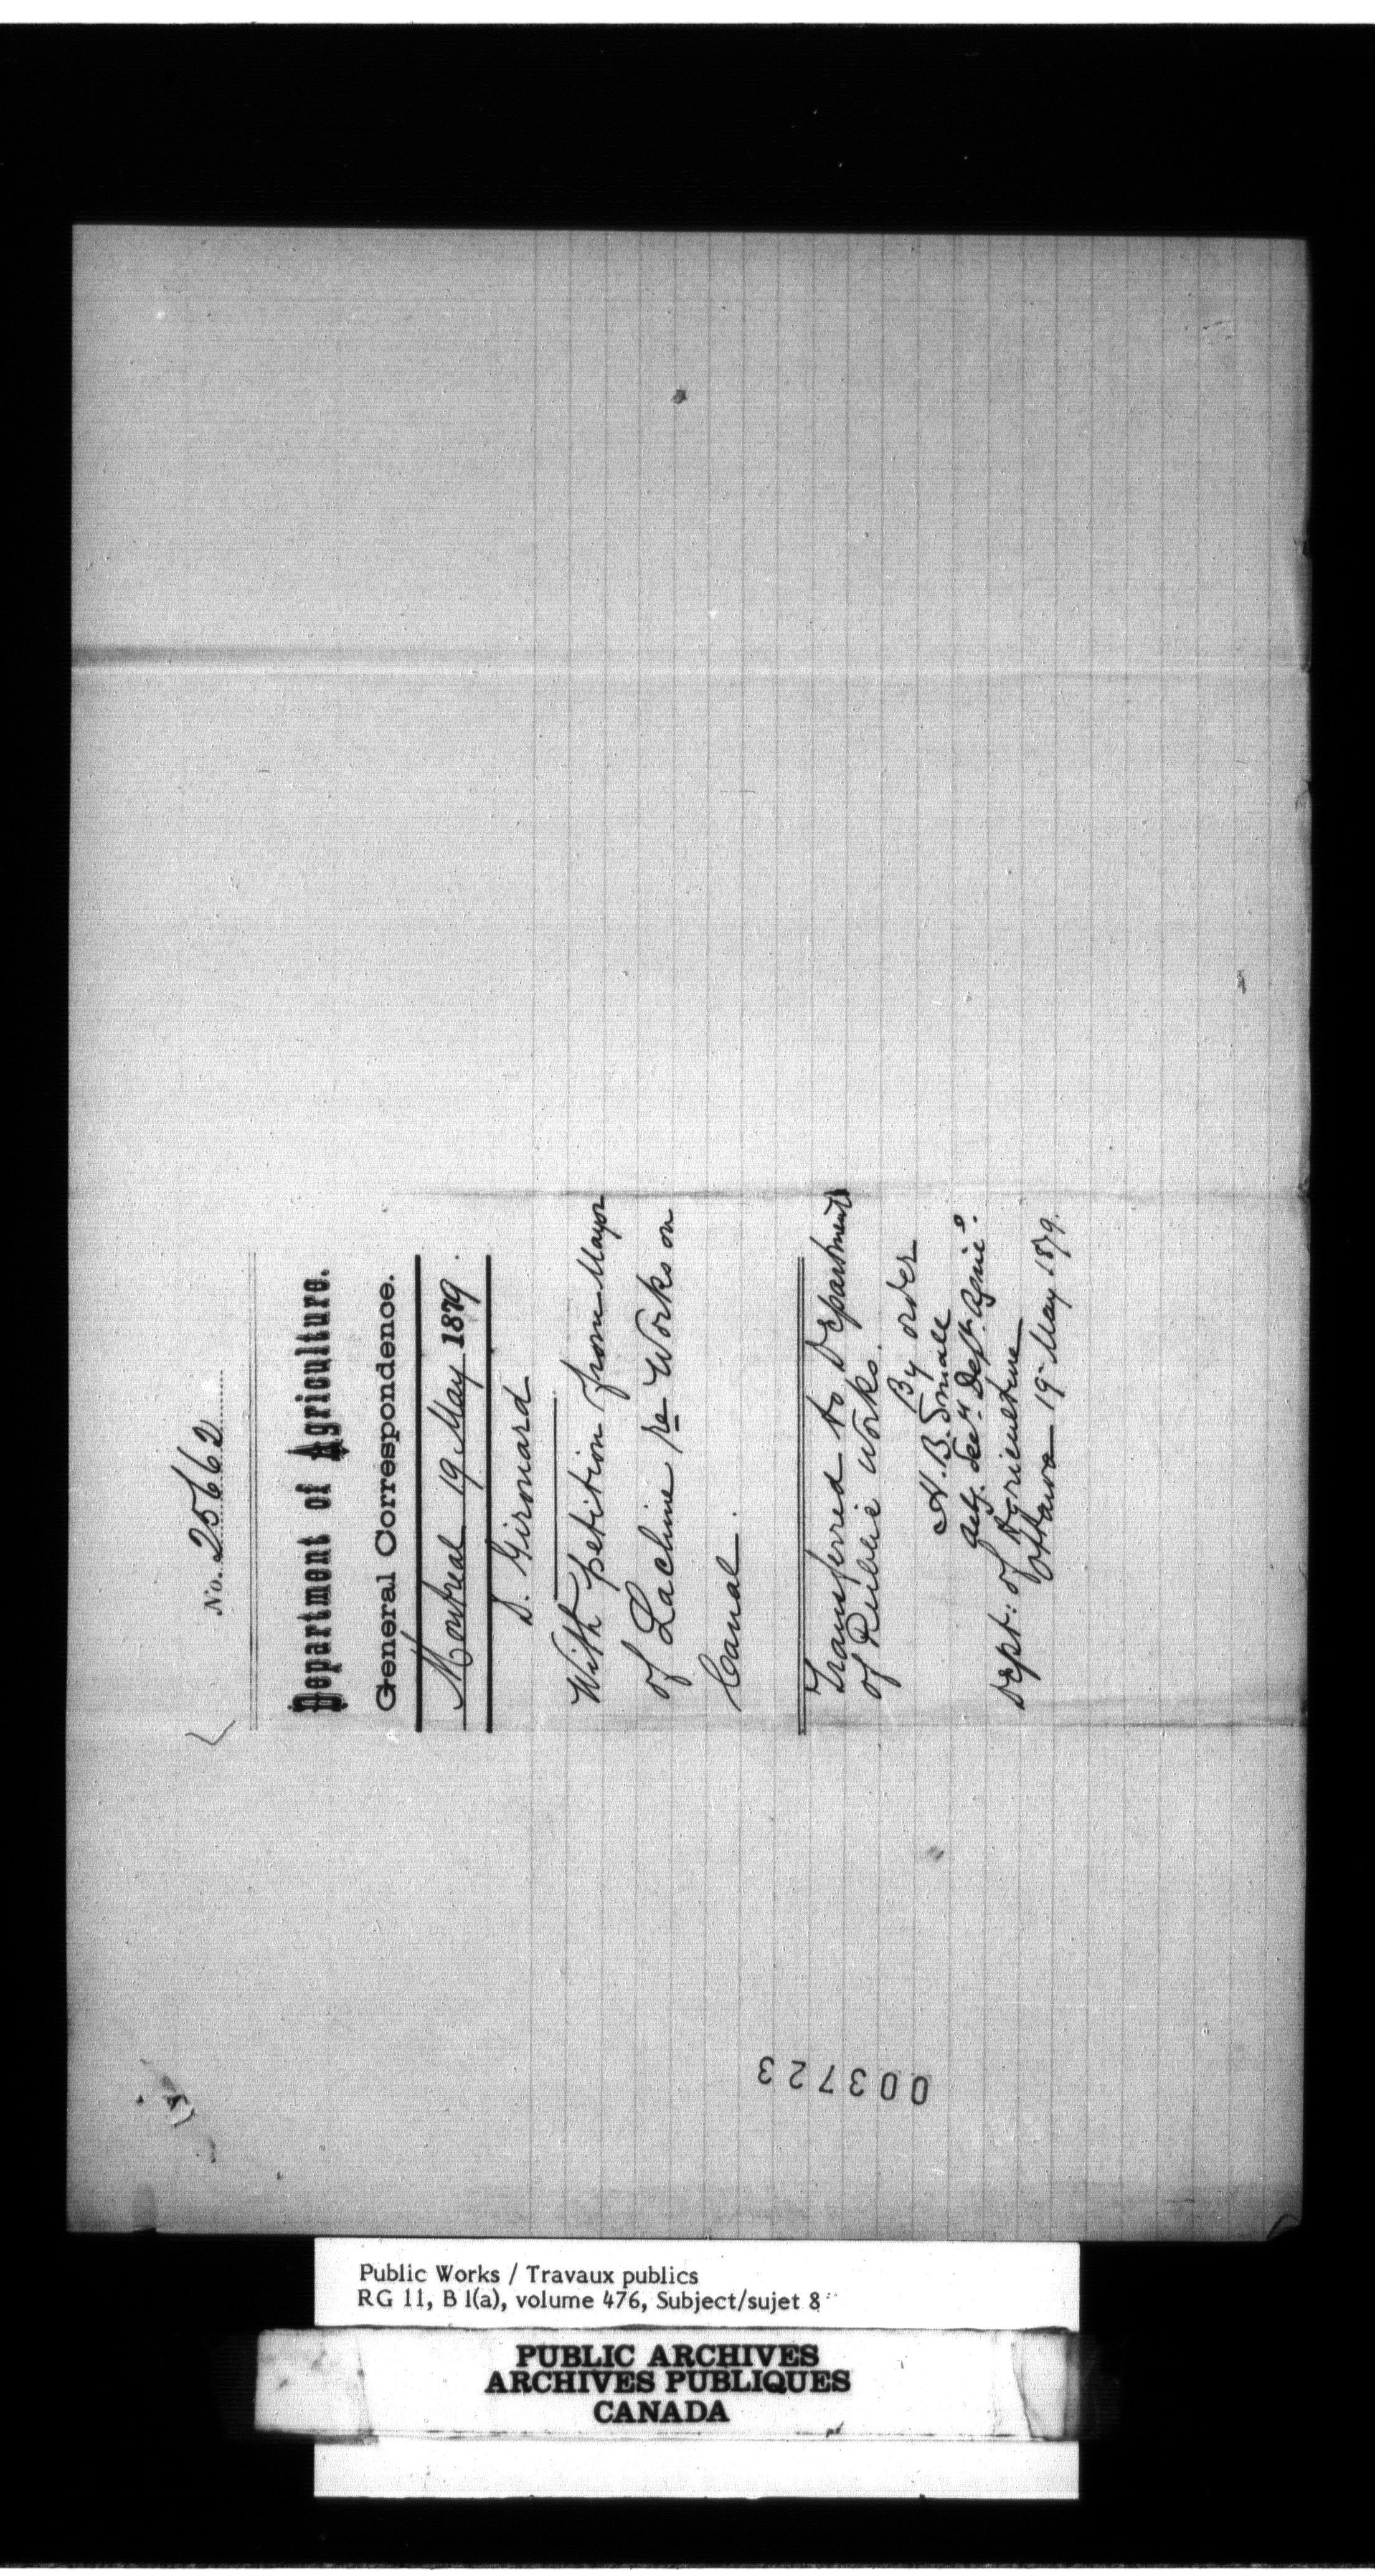 No. 25662
Department of Agriculture.
General Correspondence.
Montreal 19 May 1879.
D. Girouard
With petition from Mayor
of Lachine re Works on
Canal.
Transferred to Department
of Public Works.
By order
H. B. Small
Actg. Secy. Dept. Agric.
Dept: of Agriculture
Ottawa 19 May 1879.
003723
Public Works / Travaux publics
RG 11, B 1(a), volume 476, Subject/sujet 8
PUBLIC ARCHIVES
ARCHIVES PUBLIQUES
CANADA